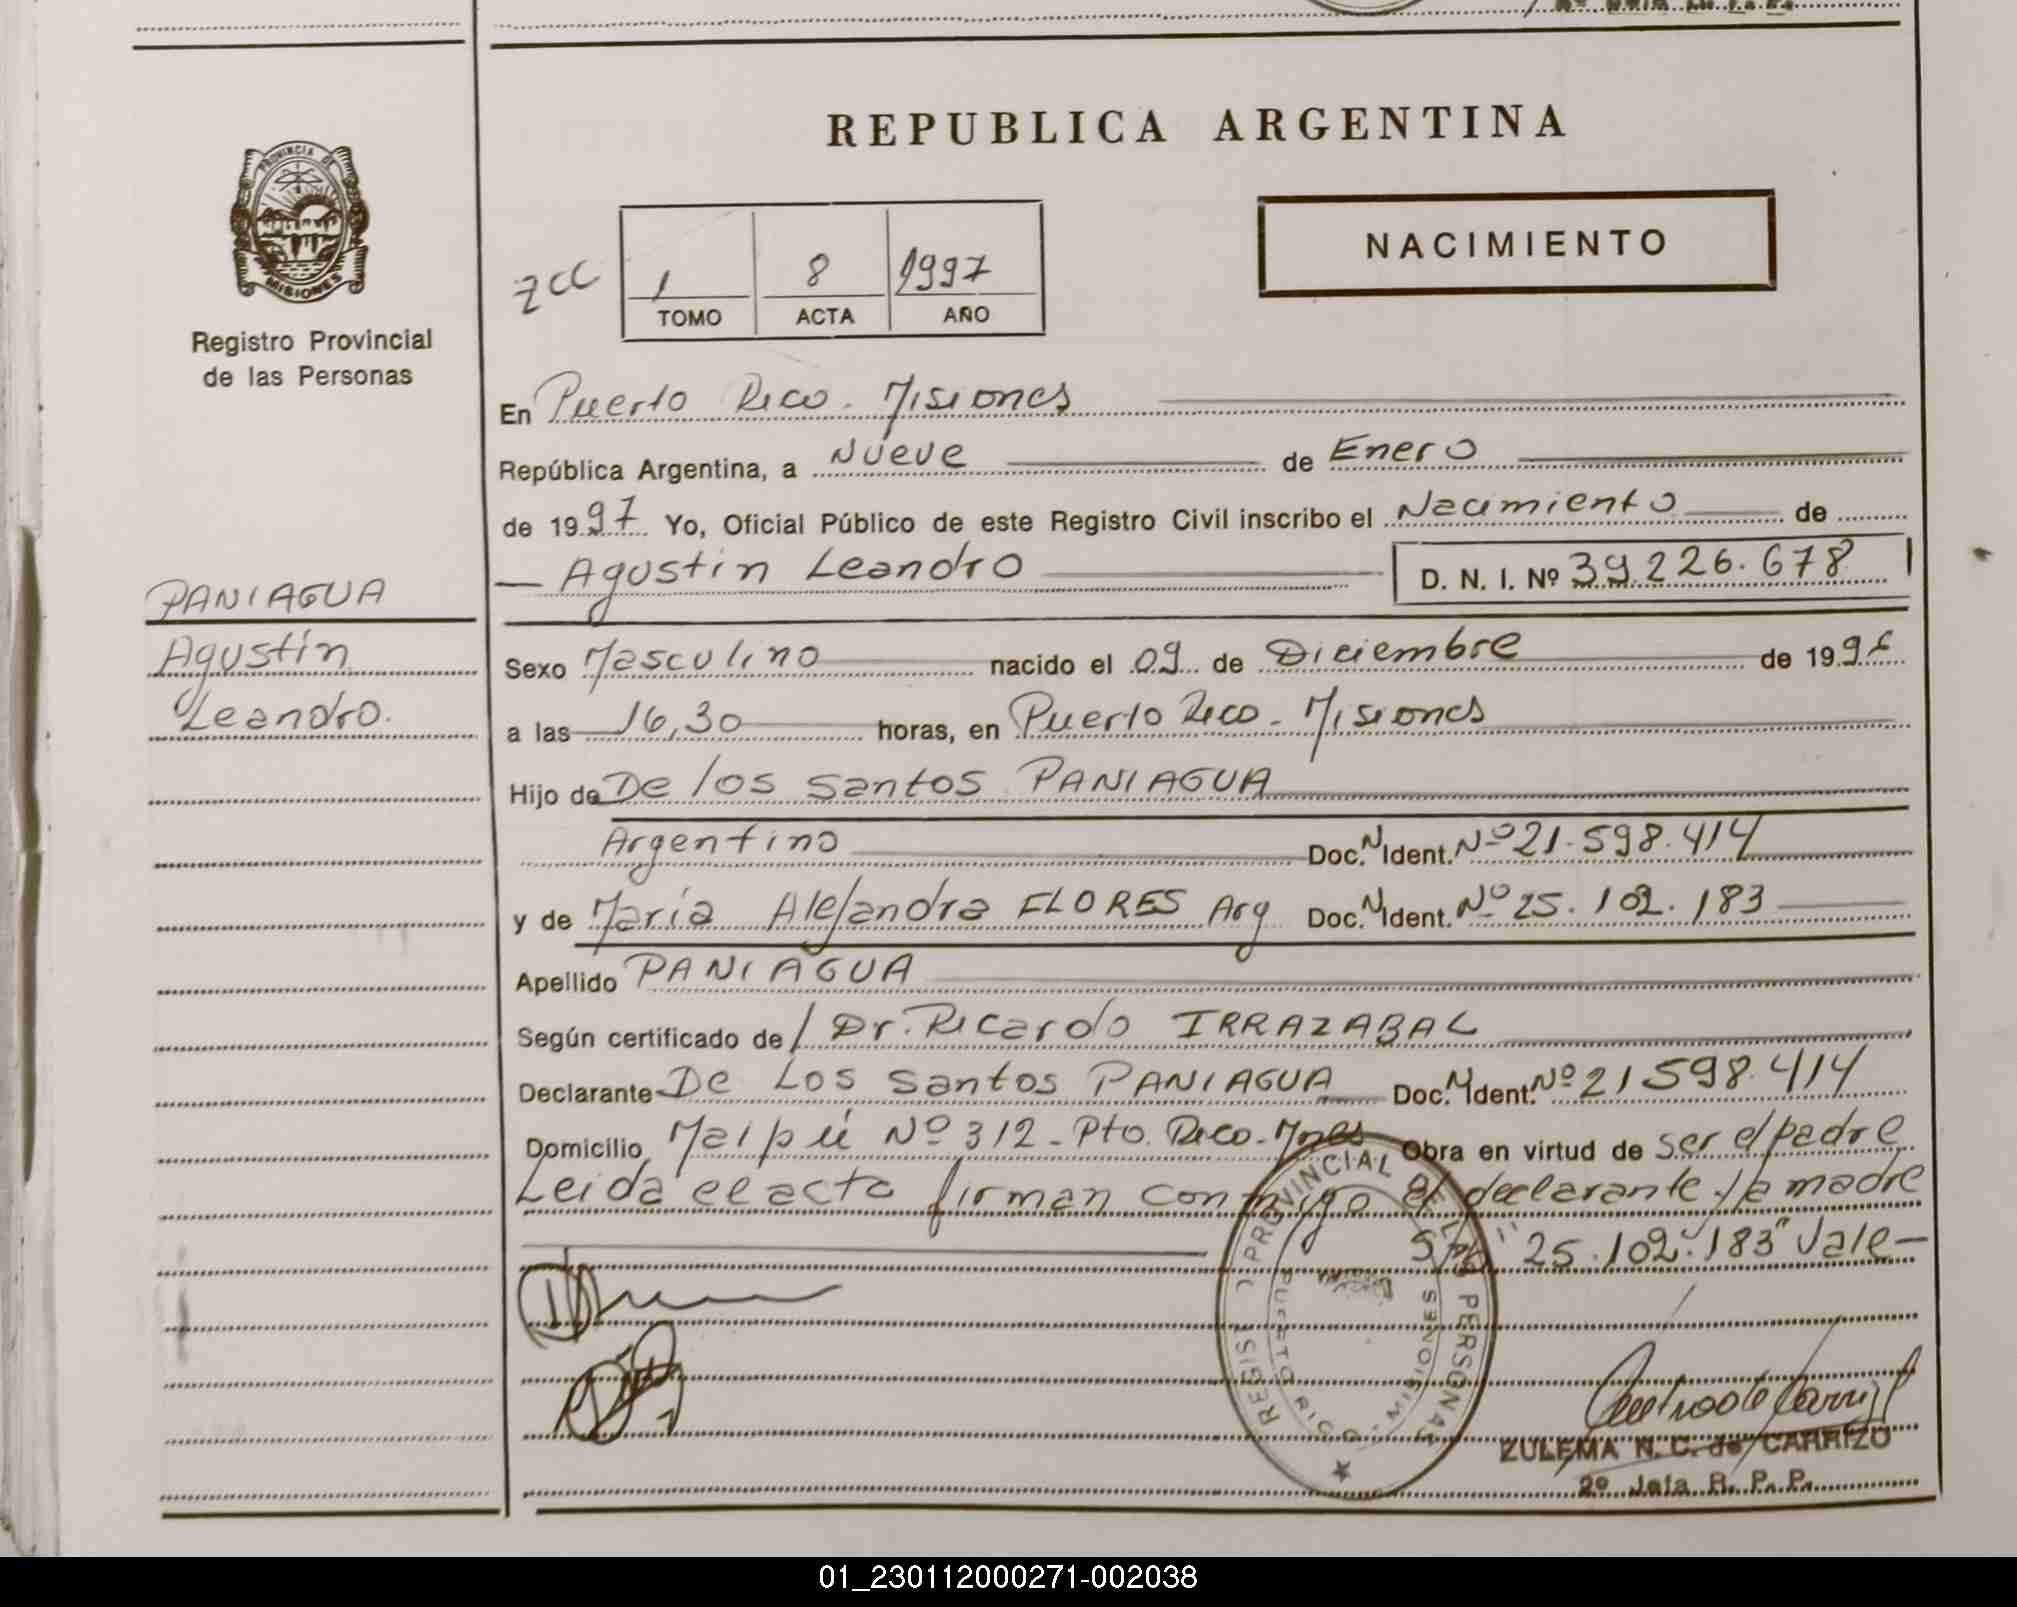 REPUBLICA ARGENTINA
PROVINCIA DE
MISIONES
Registro Provincial
de las Personas
NACIMIENTO
zcc
1 8 1997
TOMO ACTA AÑO
En Puerto Rico - Misiones
República Argentina, a Nueve de Enero
de 1997 Yo, Oficial Público de este Registro Civil inscribo el Nacimiento de
Agustin Leandro D. N. I. Nº 39.226.678
PANIAGUA
Agustín
Leandro.
Sexo Masculino nacido el 09 de Diciembre de 1996
a las 16,30 horas, en Puerto Rico - Misiones
Hijo de De los Santos PANIAGUA
Argentino Doc. N. Ident. Nº 21.598.414
y de María Alejandra FLORES Arg Doc. N. Ident. Nº 25.102.183
Apellido PANIAGUA
Según certificado de / Dr. Ricardo IRRAZABAL
Declarante De Los Santos PANIAGUA Doc. N. Ident. Nº 21598.414
Domicilio Maipú Nº 312 - Pto. Rico - Mnes Obra en virtud de ser el padre
Leida el acta firman conmigo el declarante y la madre
"25.102.183" Vale -
REGIST PROVINCIAL DE LAS PERSONAS
PUERTO RICO - MISIONES
ZULEMA N. C. de CARRIZO
2º Jefa R. P. P.
01_230112000271-002038